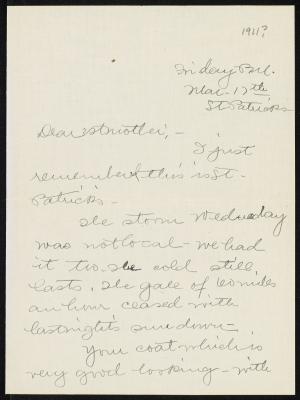 1911?
Friday P.M.
Mar. 17th
St. Patricks
Dear Strother, -
I just
remembered this is St.
Patrick's -
The storm Wednesday
was not local - we had
it too. The cold still
lasts. The gale of 60 miles
an hour ceased with
last night's sun down -
Your coat which is
very good looking - with